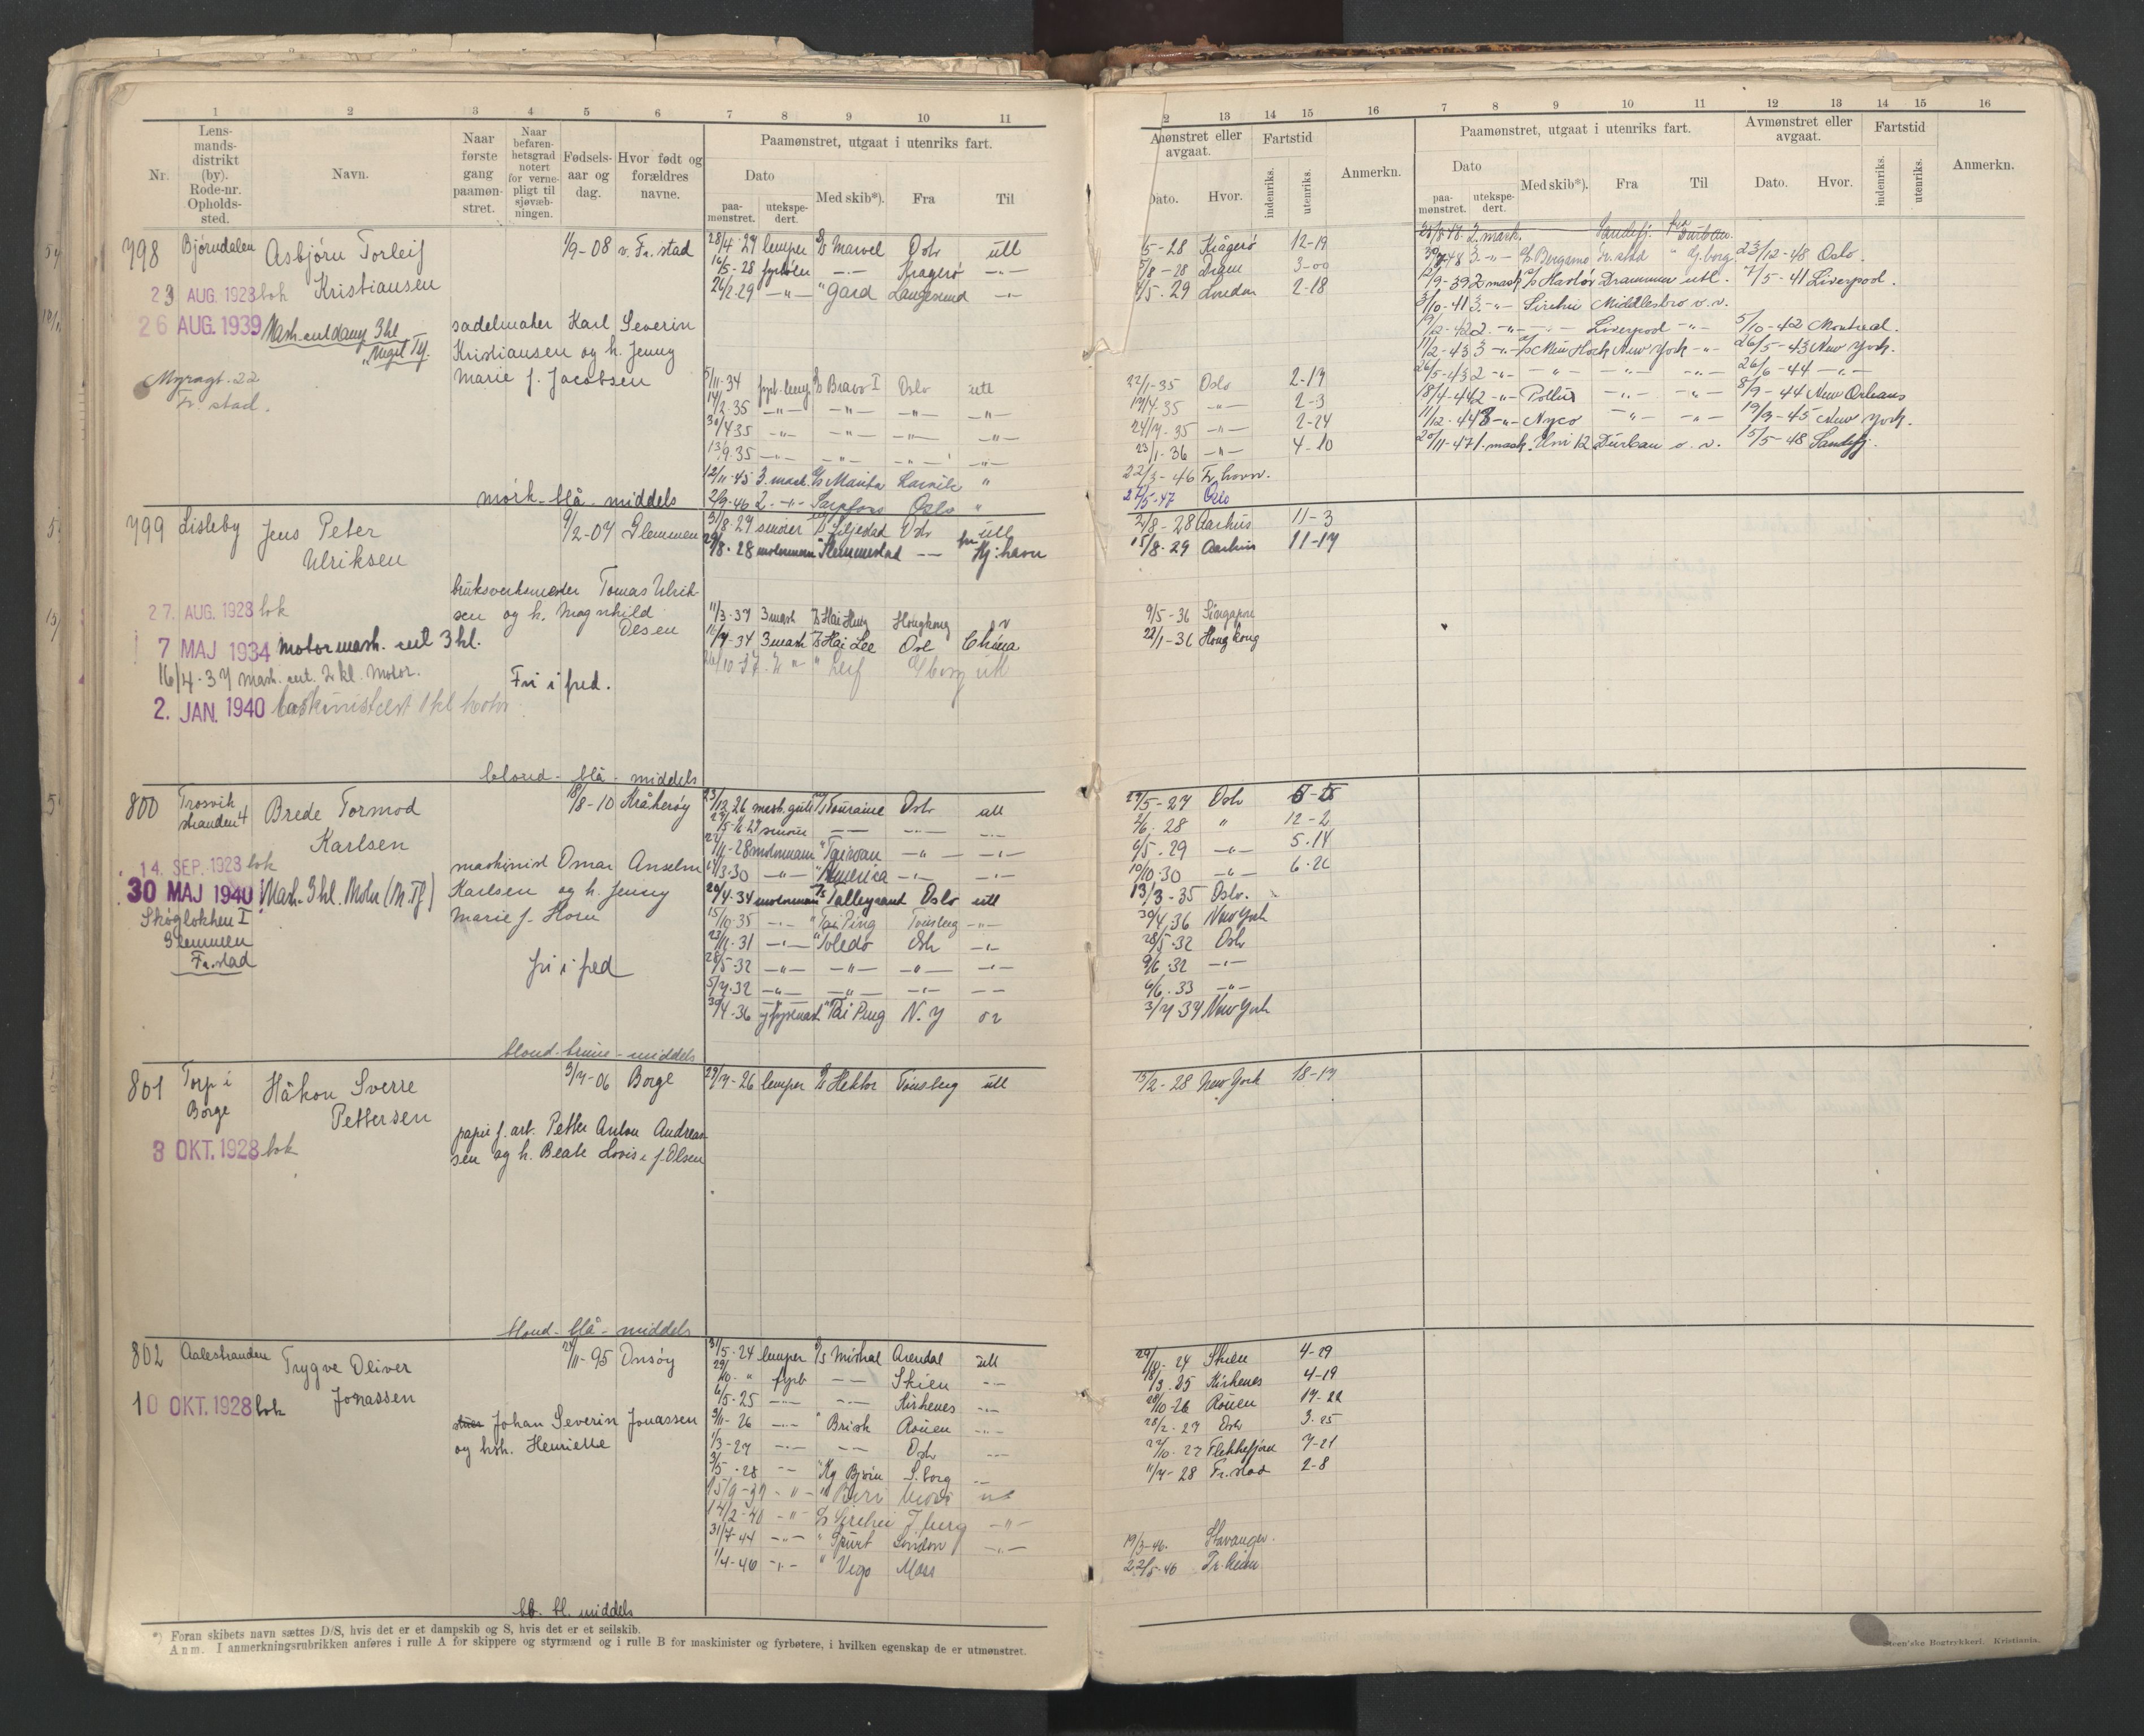 1 2 3 4 5 6 7 8 9 10 11
Nr.
Lens-
mands-
distrikt
(by).
Rode-nr.
Opholds-
sted.
Navn.
Naar
første
gang
paamøn-
stret.
Naar
befaren-
hetsgrad
notert
for verne-
pligt til
sjøvæb-
ningen.
Fødsels-
aar og
dag.
Hvor født og
forældres
navne.
Paamønstret, utgaat i utenriks fart.
Dato
paa-
mønstret.
utekspe-
dert.
Med skib*).
Fra
Til
2 13 14 15 16 7 8 9 10 11 12 13 14 15 16
Amønstret eller
avgaat.
Dato.
Hvor.
Fartstid
indenriks.
utenriks.
Anmerkn.
Paamønstret, utgaat i utenriks fart.
Dato
paa-
mønstret.
utekspe-
dert.
Med skib*).
Fra
Til
Avmønstret eller
avgaat.
Dato.
Hvor.
Fartstid
indenriks.
utenriks.
Anmerkn.
798 Bjørndalen Asbjørn Torleif
Kristiansen
1/9-08 v. Fr. stad
23 AUG. 1928 bok
26 AUG. 1939 Mask. cut damp 3 kl.
Myragt. 22
Fr. stad.
sadelmaker Karl Severin
Kristiansen og h. Jenny
Marie f. Jacobsen
28/4-27 lemper D/S Marvel Oslo utl
16/5-28 fyrbøter -"- Kragerø -"-
26/2-29 -"- " Gard Langesund -"-
5/11-34 D/S Bravo I Oslo utl
14/2-35 -"- -"- -"- -"-
30/4-35 -"- -"- -"- -"-
13/9-35 -"- -"- -"- -"-
12/11-45 3. mask. Larvik "
2/9-46 2. -"- Sarpfoss Oslo "
mørk - blå - middels
5-28 Kragerø 12-19
5/8-28 Dram 3-00
4/5-29 London 2-18
22/1-35 Oslo 2-19
17/4-35 -"- 2-3
24/7-35 -"- 2-24
23/1-36 -"- 4-10
22/3-46 Fr. havn.
27/5-47 Oslo
2. mask. Sandefj. Durban.
Bergamo Fr. stad " G. borg 23/12-48 Oslo.
12/9-39 2 mask Drammen utl. 7/5-41 Liverpool.
3/10-41 3 -"- Sirehei Middlesbro o.v.
19/12-42 2. -"- -"- Liverpool -"- 5/10-42 Montreal.
11/2-43 3 -"- New York -"- 26/5-43 New York.
26/5-43 2 -"- -"- -"- -"- 26/6-44 -"-
18/4-44 2 -"- Pollux -"- -"- 8/9-44 New Orleans
11/12-44 3 -"- Nyco -"- -"- 19/3-45 New York.
20/11-47 1. mask. Uni 12 Durban o. v. 15/5-48 Sandefj.
799 Lisleby Jens Peter
Ulriksen
9/2-07 Glemmen
27. AUG. 1928 bok
7 MAJ 1934 motormask. cut 3 kl.
16/4-37 mask. cut. 2 kl. motor.
2. JAN. 1940 Maskinistcert 1 kl motor
bruksverksmester Tomas Ulrik-
sen og h. Magnhild
Olsen
Fri i fred.
31/8-27 smører Oslo utl
29/8-28 motormann " Slemmestad -- Kj:havn
11/3-37 3 mask Hai Hing Hongkong
16/7-34 3 mask Hai Lee Osl China
" Leif G borg utl
blond - blå - middels
2/8-28 Aarhus 11-3
15/8-29 Aarhus 11-17
9/5-36 Singapore
22/1-36 Hong kong
800 Trosvik
stranden 4
Brede Tormod
Karlsen
18/8-10 Kråkerøy
14. SEP. 1928 bok
30 MAJ 1940 Mask. 3 kl. Motor (M. Tf)
Skogløkken I
Glemmen
Fr. stad
maskinist Omar Anselm
Karlsen og h. Jenny
Marie f. Horn
fri i fred
23/12-26 mask. gutt M/S Touraine Oslo utl
smører -- -"- -"-
motormann " Taiwan -"- -"-
14/3-30 -"- " America -"- -"-
20/4-34 motormann Talleyrand Oslo utl
15/10-35 -"- " Tai Ping Tønsberg -"-
23/11-31 -"- " Toledo Oslo -"-
28/5-32 -"- -"- -"- -"-
5/7-32 -"- -"- -"- --
30/4-36 " Tai Ping N. Y ov
blond - brune - middels
27/5-27 Oslo
2/6-28 " 12-2
6/5-29 -"- 5-14
10/10-30 -"- 6-26
13/3-35 Oslo.
30/4-36 New York
28/5-32 Oslo
9/6-32 -"-
6/6-33 -"-
3/7-37 New York
801 Torp i
Borge
Håkon Sverre
Pettersen
3/7-06 Borge
3 OKT. 1928 bok
papir f. arb. Petter Anton Andreas-
sen og h. Beate Lovise f. Olsen
29/7-26 lemper D/S Hektor Tønsberg utl
blond - blå - middels
15/2-28 New York 18-17
802 Aalestranden Trygve Oliver
Jonassen
24/11-95 Onsøy
10 OKT. 1928 bok
Johan Severin Jonassen
og hsh. Henriette
31/5-24 lemper D/S Mistral Arendal utl
29/10- " fyrb -- Skien --
6/5-25 -"- -- Kirkenes -"-
3/11-26 -"- " Brisk Rouen -"-
1/3-27 -"- -- Oslo --
3/5-28 -- " Kg Bjørn S. borg --
15/9-39 -"- " Biri Moss utl
14/2-40 -"- D/S Sirehei -"-
31/7-44 -"- " Spurt London -"-
1/4-46 -"- " Vigo Moss
bl. bl. middels
29/10-24 Skien 4-29
18/3-25 Kirkenes 4-19
20/10-26 Rouen 17-22
28/2-27 Oslo 3-25
22/10-27 Flekkefjord 7-21
11/7-28 Fr. stad 2-8
19/3-46. Stavanger.
22/5-46 Tr. heim
*) Foran skibets navn sættes D/S, hvis det er et dampskib og S, hvis det er et seilskib.
Anm. I anmerkningsrubrikken anføres i rulle A for skippere og styrmænd og i rulle B for maskinister og fyrbøtere, i hvilken egenskap de er utmønstret.
Steen'ske Bogtrykkeri. Kristiania.